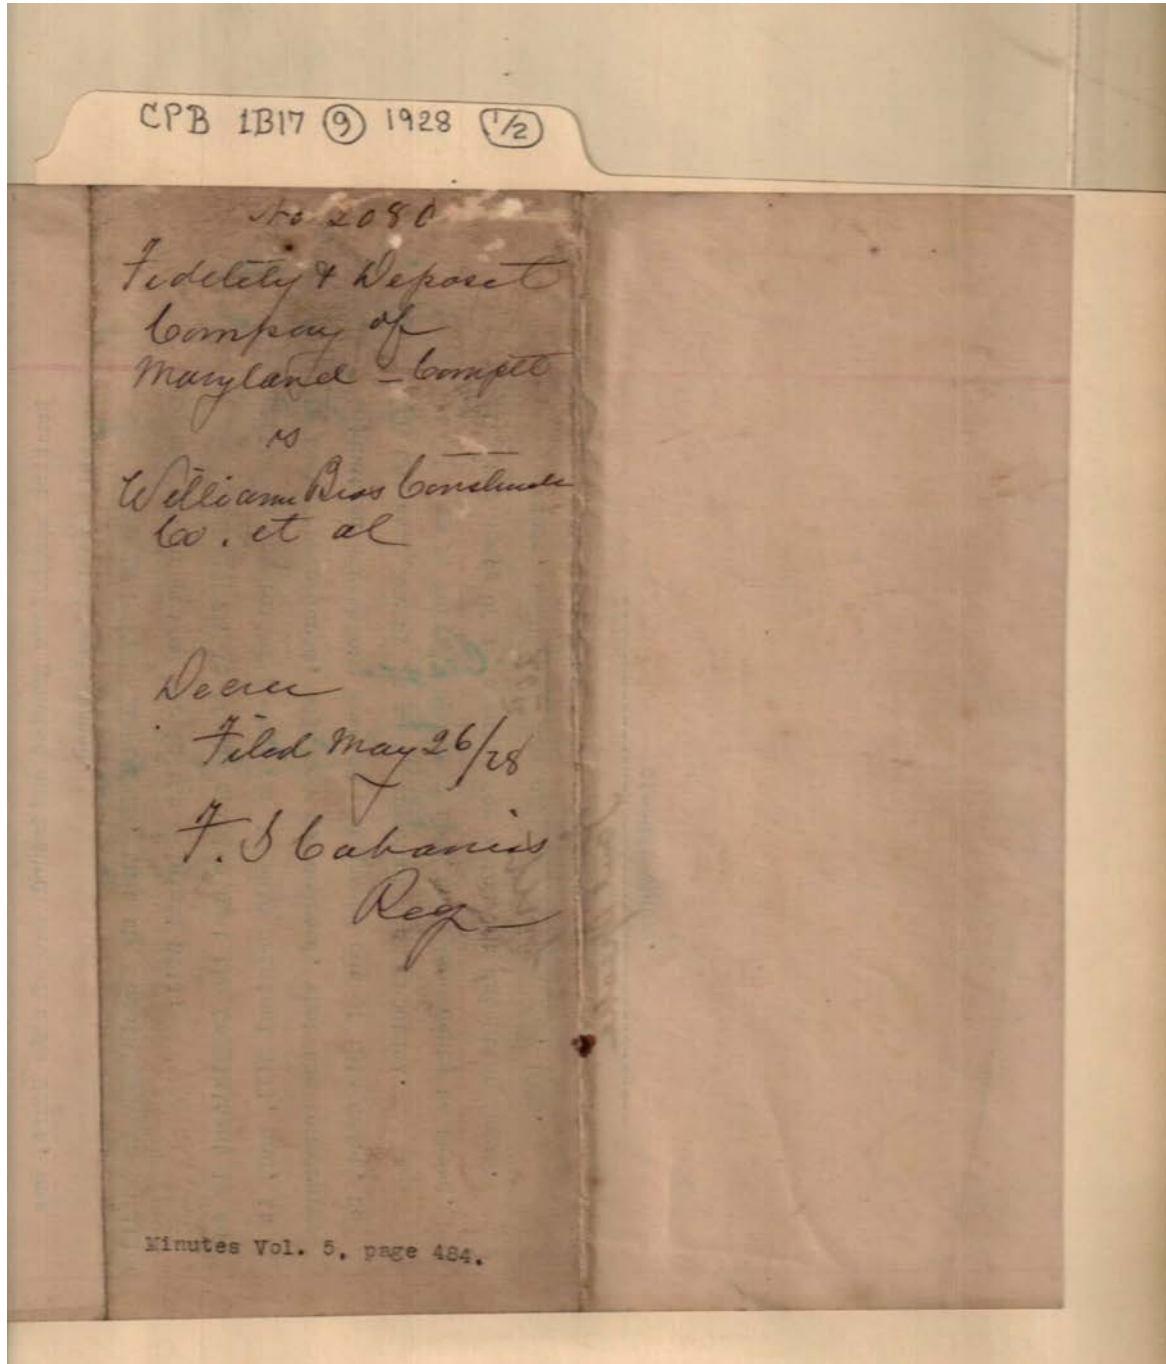 CPB 1B17 9 1928 1/2
No 2080
Fidelity & Deposit
Compay of
Maryland - Complt
vs
Williams Bros Construction
Co. et al
Decree
Filed May 26/28
F. S Cabaniss
Reg
Minutes Vol. 5, page 484.